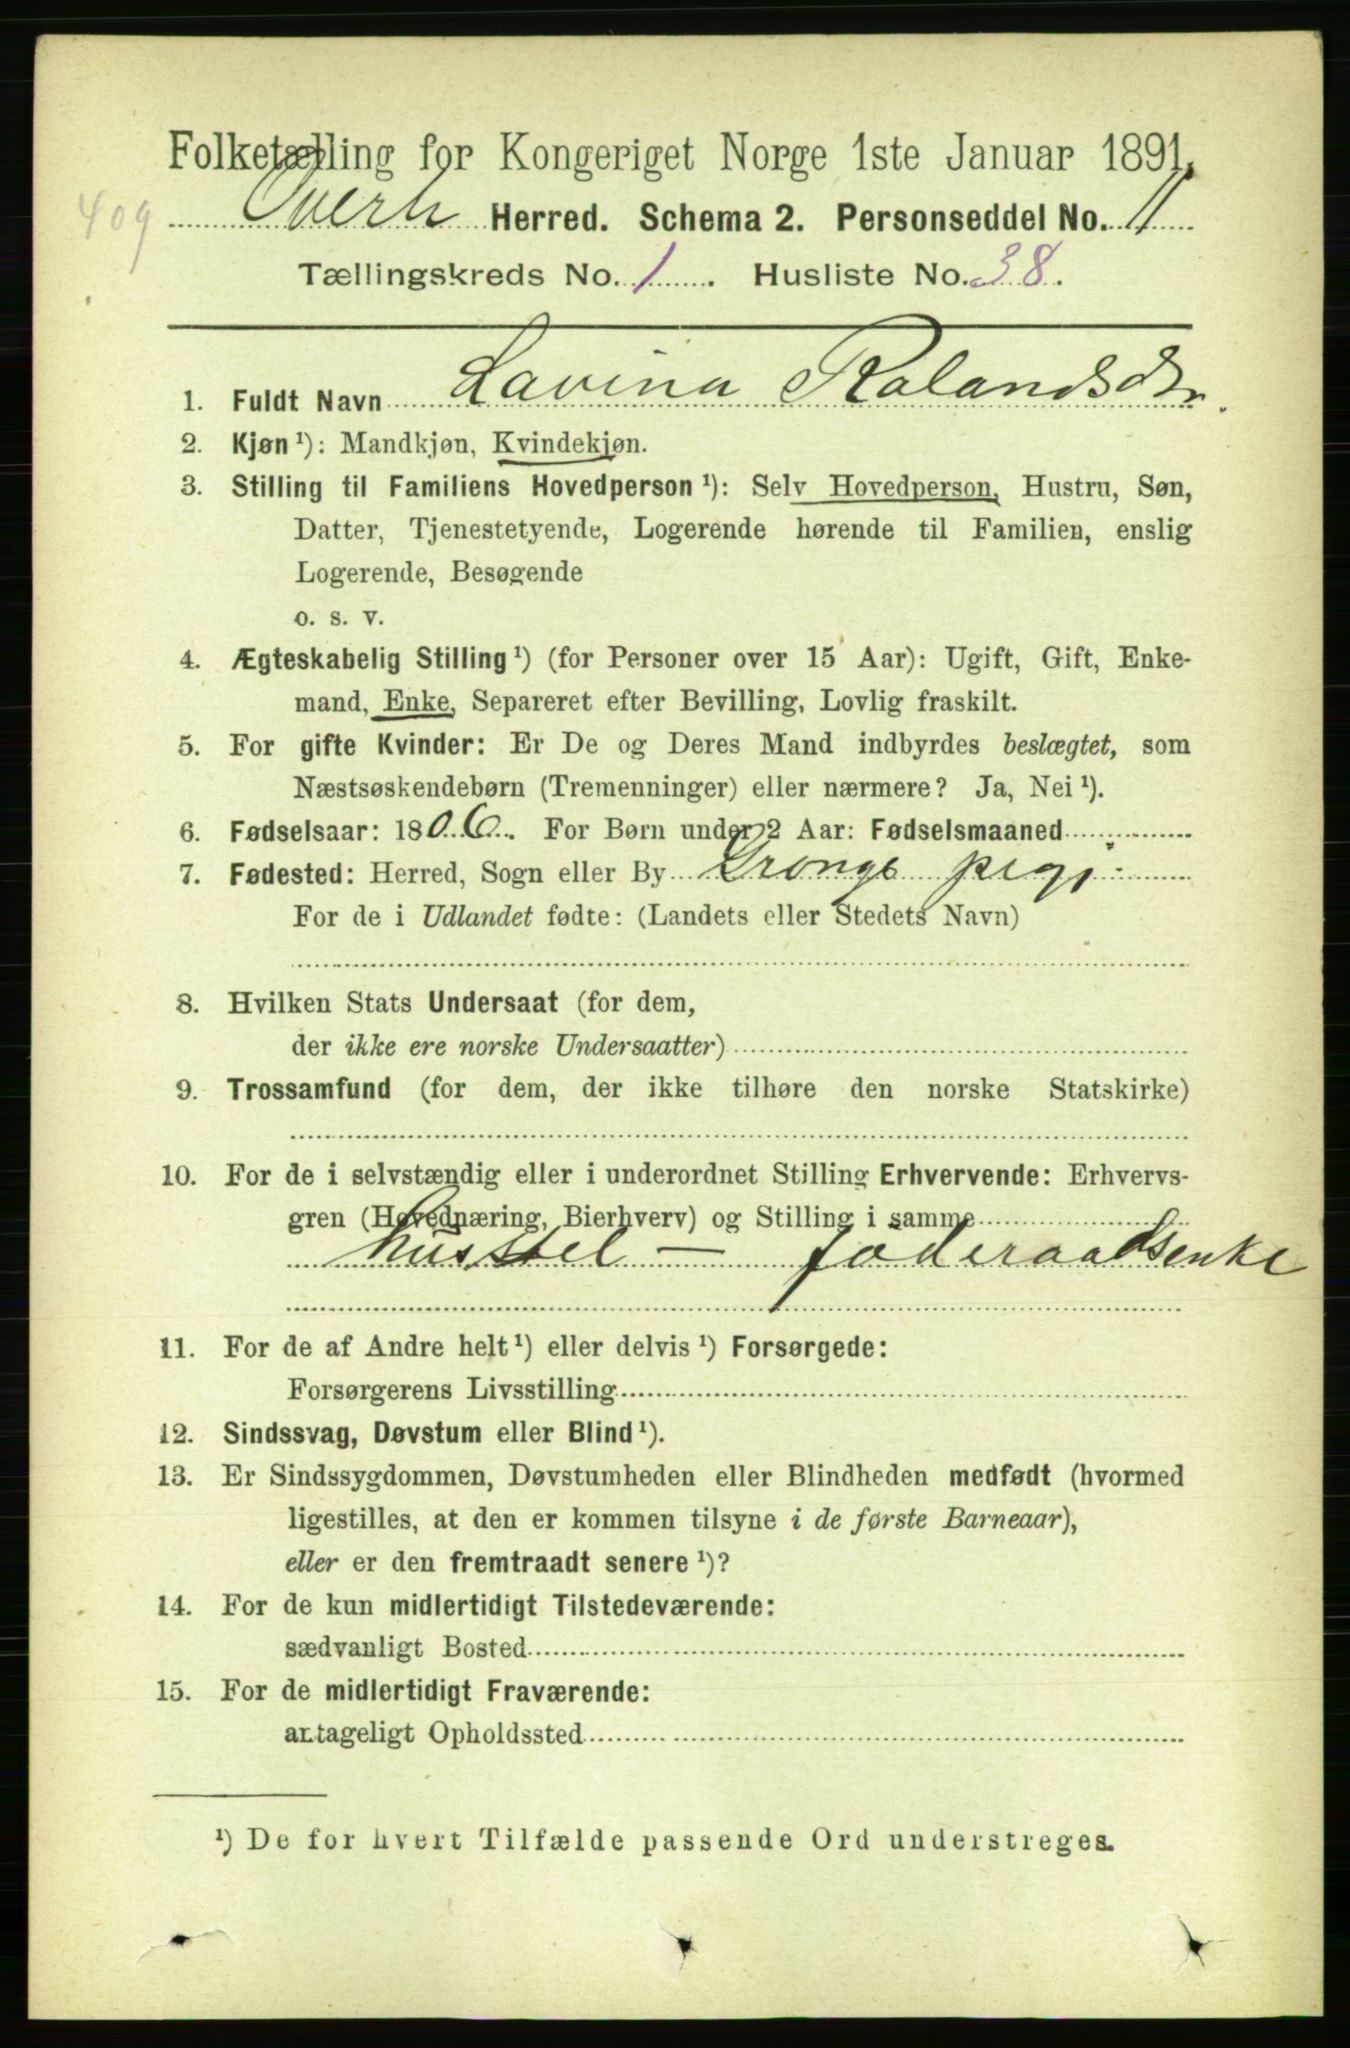 Folketælling for Kongeriget Norge 1ste Januar 1891.
409
Overh Herred. Schema 2. Personseddel No. 11
Tællingskreds No. 1. Husliste No. 38.
1. Fuldt Navn Lavina Rolandsdtr.
2. Kjøn¹): Mandkjøn, Kvindekjøn.
3. Stilling til Familiens Hovedperson¹): Selv Hovedperson, Hustru, Søn,
Datter, Tjenestetyende, Logerende hørende til Familien, enslig
Logerende, Besøgende
o. s. v.
4. Ægteskabelig Stilling¹) (for Personer over 15 Aar): Ugift, Gift, Enke-
mand, Enke, Separeret efter Bevilling, Lovlig fraskilt.
5. For gifte Kvinder: Er De og Deres Mand indbyrdes beslægtet, som
Næstsøskendebørn (Tremenninger) eller nærmere? Ja, Nei¹).
6. Fødselsaar: 1806. For Børn under 2 Aar: Fødselsmaaned
7. Fødested: Herred, Sogn eller By Grongs prgj.
For de i Udlandet fødte: (Landets eller Stedets Navn)
8. Hvilken Stats Undersaat (for dem,
der ikke ere norske Undersaatter)
9. Trossamfund (for dem, der ikke tilhøre den norske Statskirke)
10. For de i selvstændig eller i underordnet Stilling Erhvervende: Erhvervs-
gren (Hovednæring, Bierhverv) og Stilling i samme
husstel — føderaadsenke
11. For de af Andre helt¹) eller delvis¹) Forsørgede:
Forsørgerens Livsstilling
12. Sindssvag, Døvstum eller Blind¹).
13. Er Sindssygdommen, Døvstumheden eller Blindheden medfødt (hvormed
ligestilles, at den er kommen tilsyne i de første Barneaar),
eller er den fremtraadt senere¹)?
14. For de kun midlertidigt Tilstedeværende:
sædvanligt Bosted
15. For de midlertidigt Fraværende:
antageligt Opholdssted
¹) De for hvert Tilfælde passende Ord understreges.